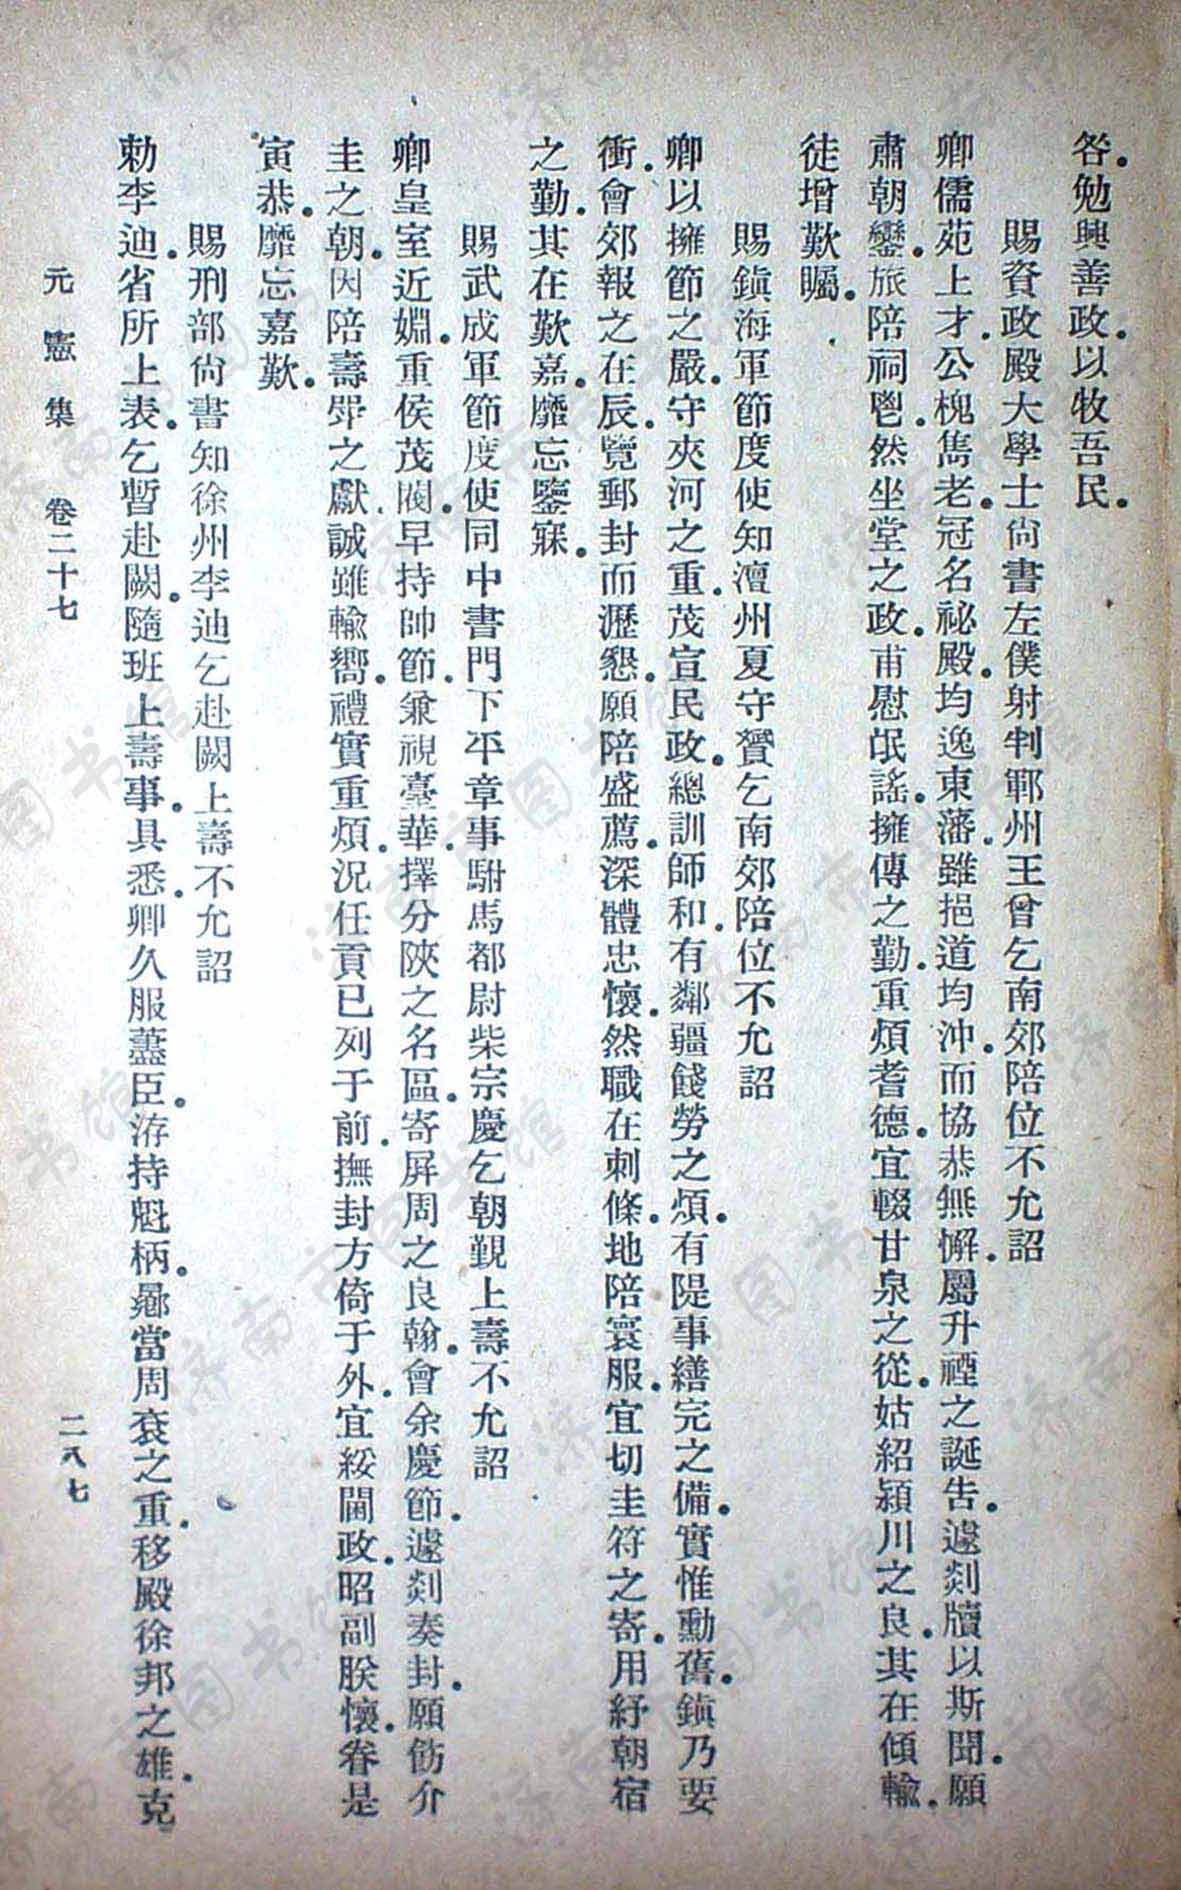 咎勉興善政以牧吾民
賜資政殿大學士尙書左僕射判鄆州王曾乞南郊陪位不允詔
卿儒苑上才公槐雋老冠名祕殿均逸東藩雖挹道均沖而協恭無懈屬升禋之誕告遽剡牘以斯聞願
肅朝鑾旅陪祠鬯然坐堂之政甫慰氓謠擁傳之勤重煩耆德宜輟甘泉之從姑紹潁川之良其在傾輸
徒增歎矚
賜鎮海軍節度使知澶州夏守贇乞南郊陪位不允詔
卿以擁節之嚴守夾河之重茂宣民政總訓師和有鄰疆餞勞之煩有隄事繕完之備實惟勳舊鎮乃要
衝會郊報之在辰覽郵封而瀝懇願陪盛薦深體忠懷然職在刺條地陪寰服宜切圭符之寄用紓朝宿
之勤其在歎嘉靡忘鑒寐
賜武成軍節度使同中書門下平章事駙馬都尉柴宗慶乞朝覲上壽不允詔
卿皇室近婣重侯茂閥早持帥節兼視臺華擇分陝之名區寄屏周之良翰會余慶節遽剡奏封願飭介
圭之朝因陪壽斝之獻誠雖輸嚮禮實重煩況任貢已列于前撫封方倚于外宜綏閫政昭副朕懷眷是
寅恭靡忘嘉歎
賜刑部尙書知徐州李迪乞赴闕上壽不允詔
勅李迪省所上表乞暫赴闕隨班上壽事具悉卿久服藎臣洊持魁柄曏當周袞之重移殿徐邦之雄克
元憲集 卷二十七 二八七